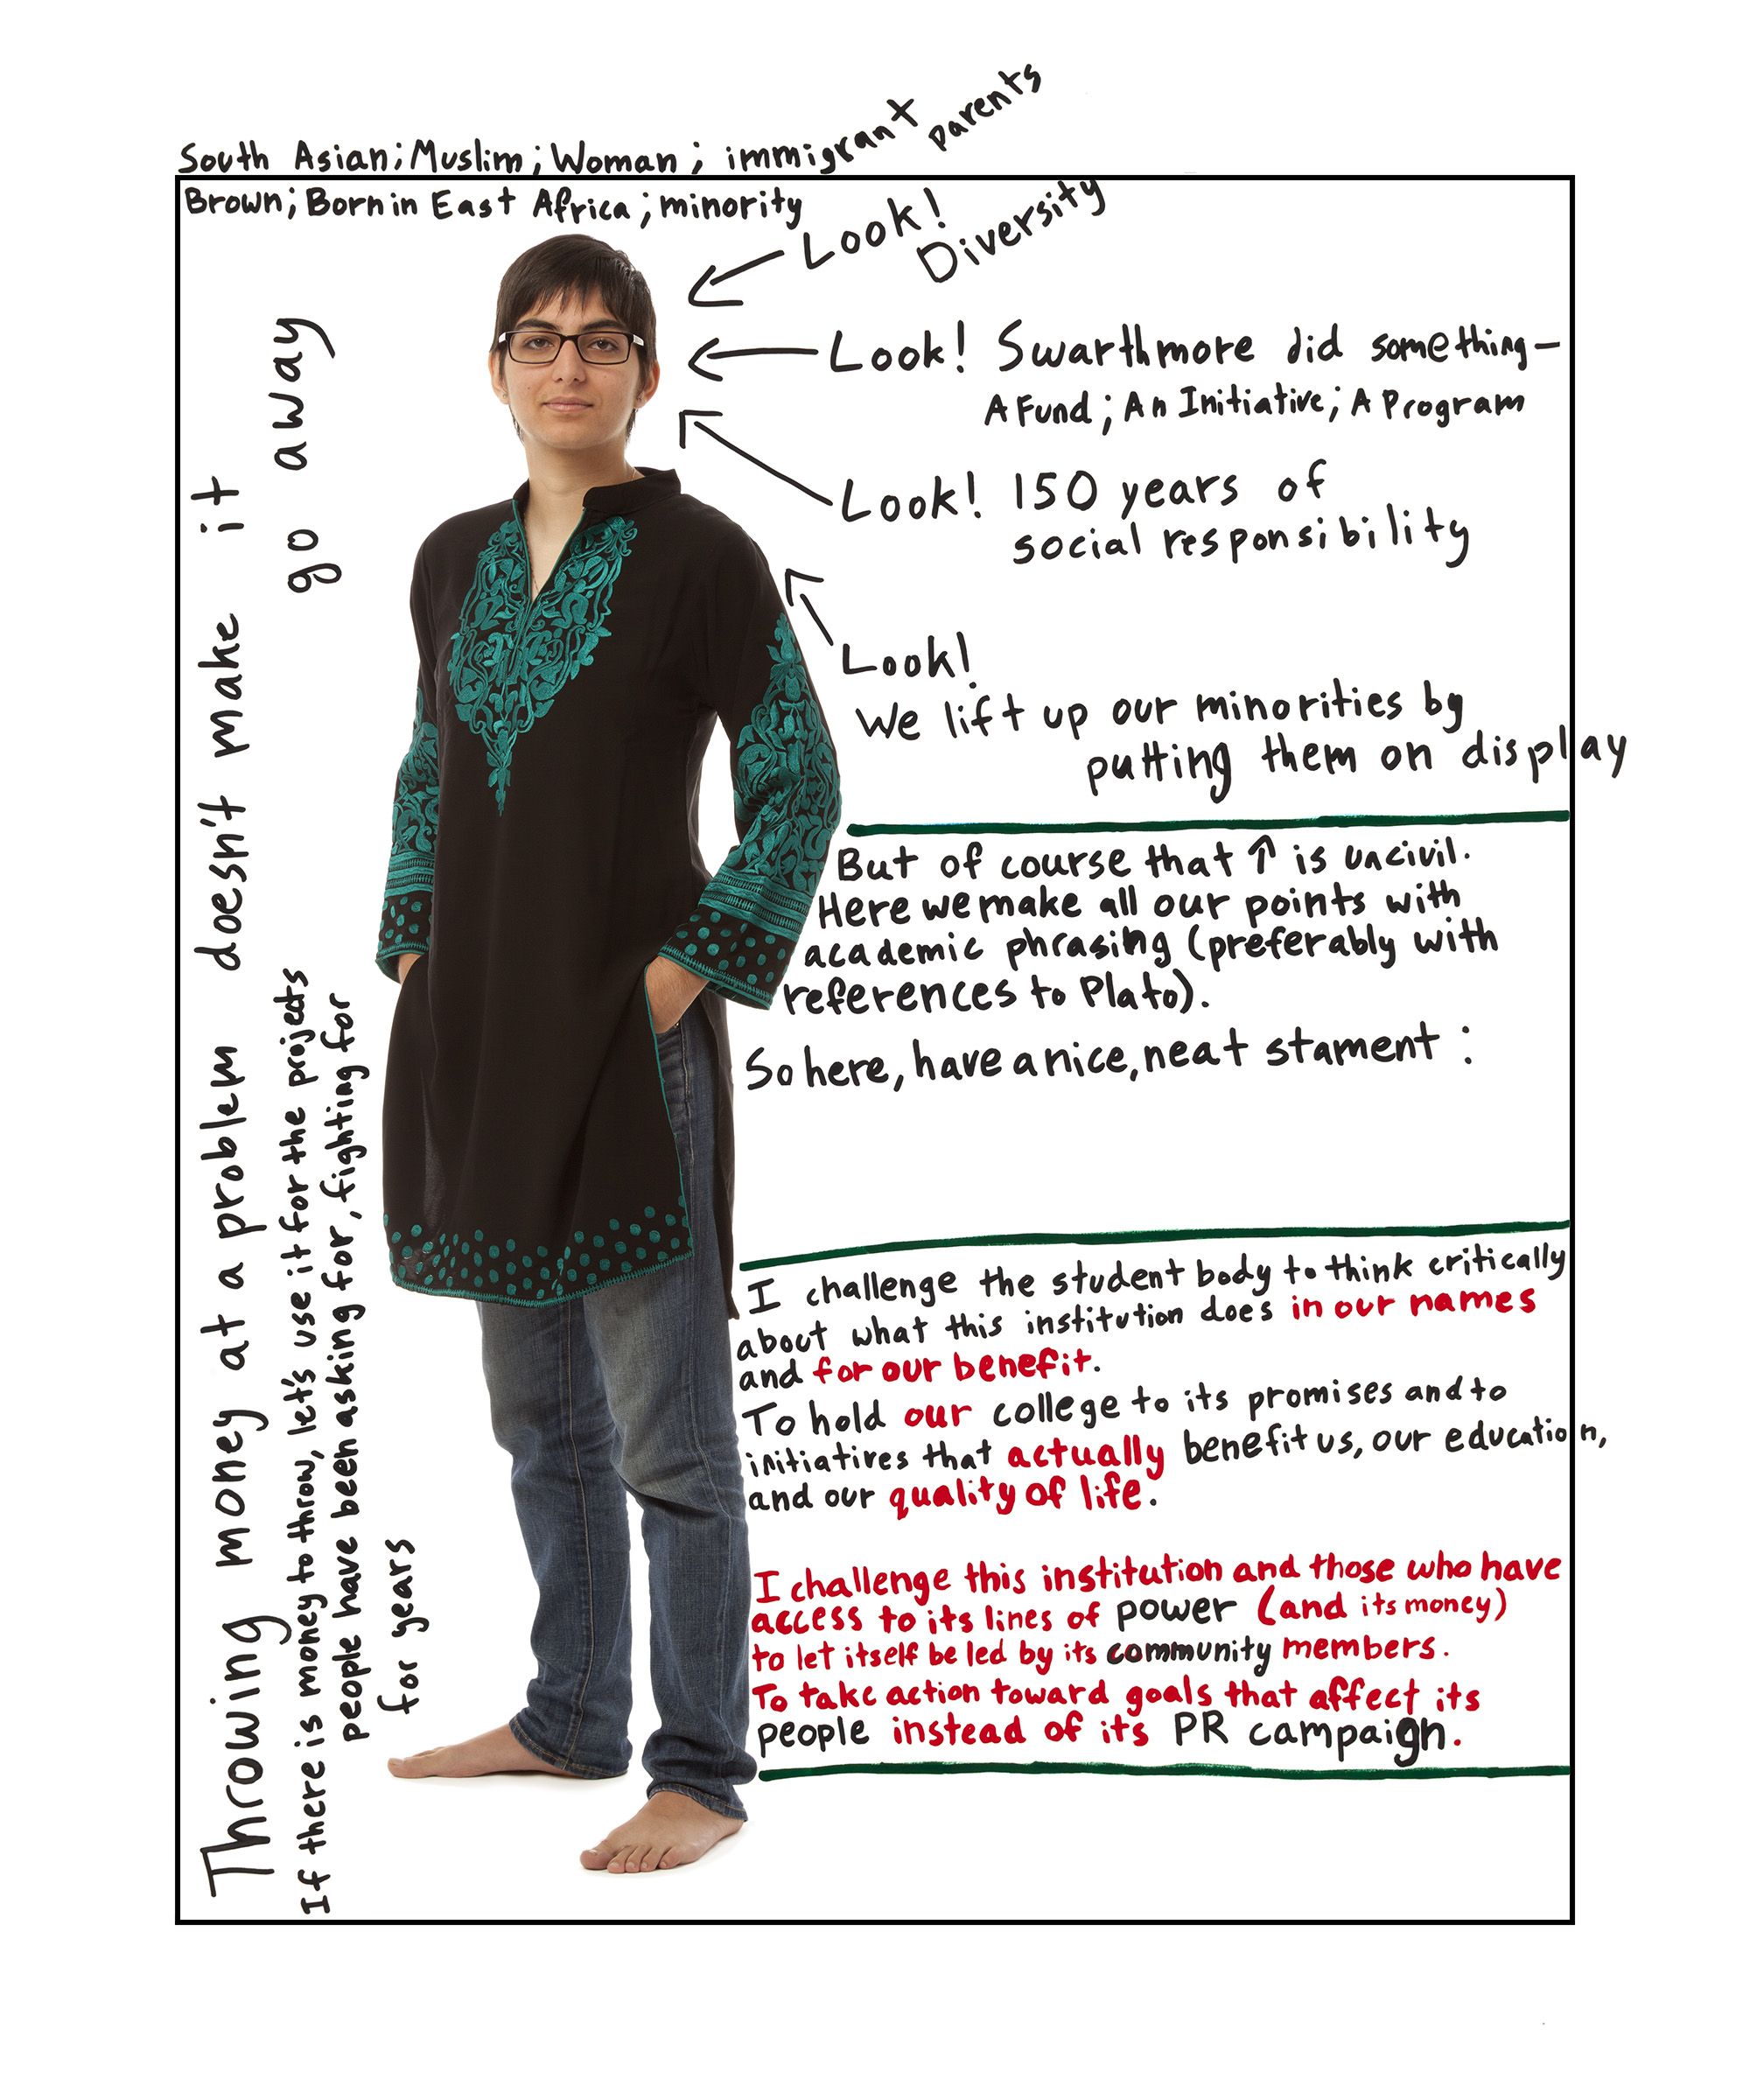 South Asian; Muslim; Woman; immigrant parents
Brown; Born in East Africa; minority
Look!
Diversity
Look! Swarthmore did something—
A Fund; An Initiative; A Program
Look! 150 years of
social responsibility
Look!
We lift up our minorities by
putting them on display
But of course that ↑ is uncivil.
Here we make all our points with
academic phrasing (preferably with
references to Plato).
So here, have a nice, neat stament:
I challenge the student body to think critically
about what this institution does in our names
and for our benefit.
To hold our college to its promises and to
initiatives that actually benefit us, our education,
and our quality of life.
I challenge this institution and those who have
access to its lines of power (and its money)
to let itself be led by its community members.
To take action toward goals that affect its
people instead of its PR campaign.
Throwing money at a problem doesn't make it
go away
If there is money to throw, let's use it for the projets
people have been asking for, fighting for
for years